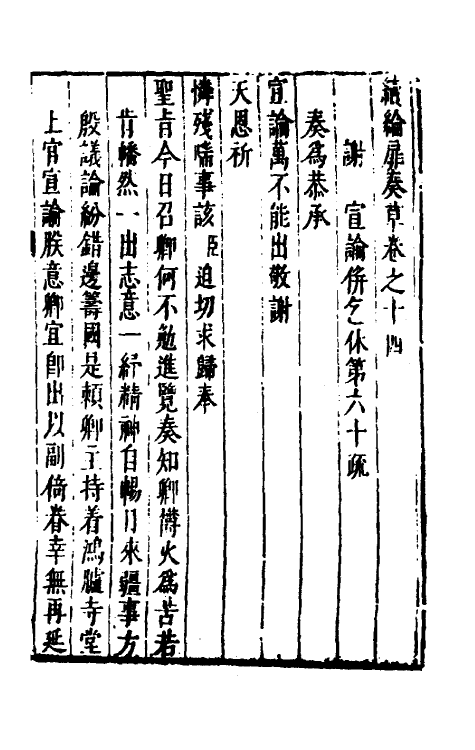 續綸扉奏草卷之十四
謝　宣諭併乞休第六十疏
奏爲恭承
宣諭萬不能出敬謝
天恩祈
憐殘喘事該臣迫切求歸奉
聖旨今日召卿何不勉進覽奏知卿慱火爲苦若
肯幡然一出志意一紓精神自暢日來疆事方
殷議論紛錯邊籌國是賴卿主持着鴻臚寺堂
上官宣諭朕意卿宜卽出以副倚眷幸無再延